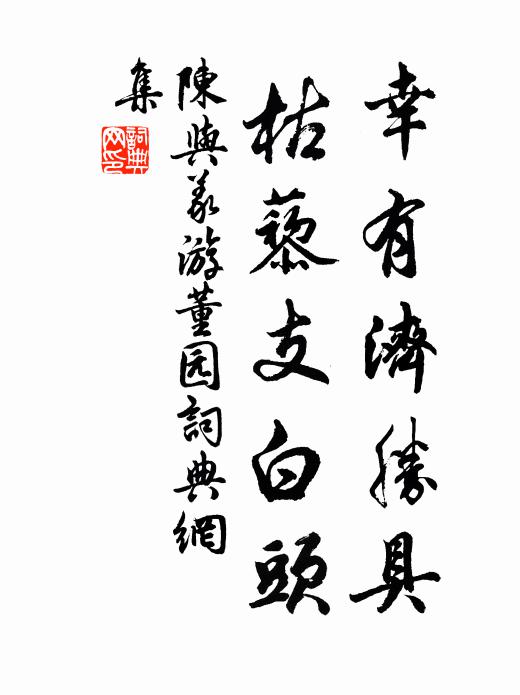 幸有濟勝具
枯藜支白頭
陳與义游董园詞典網
集
詞典
网印